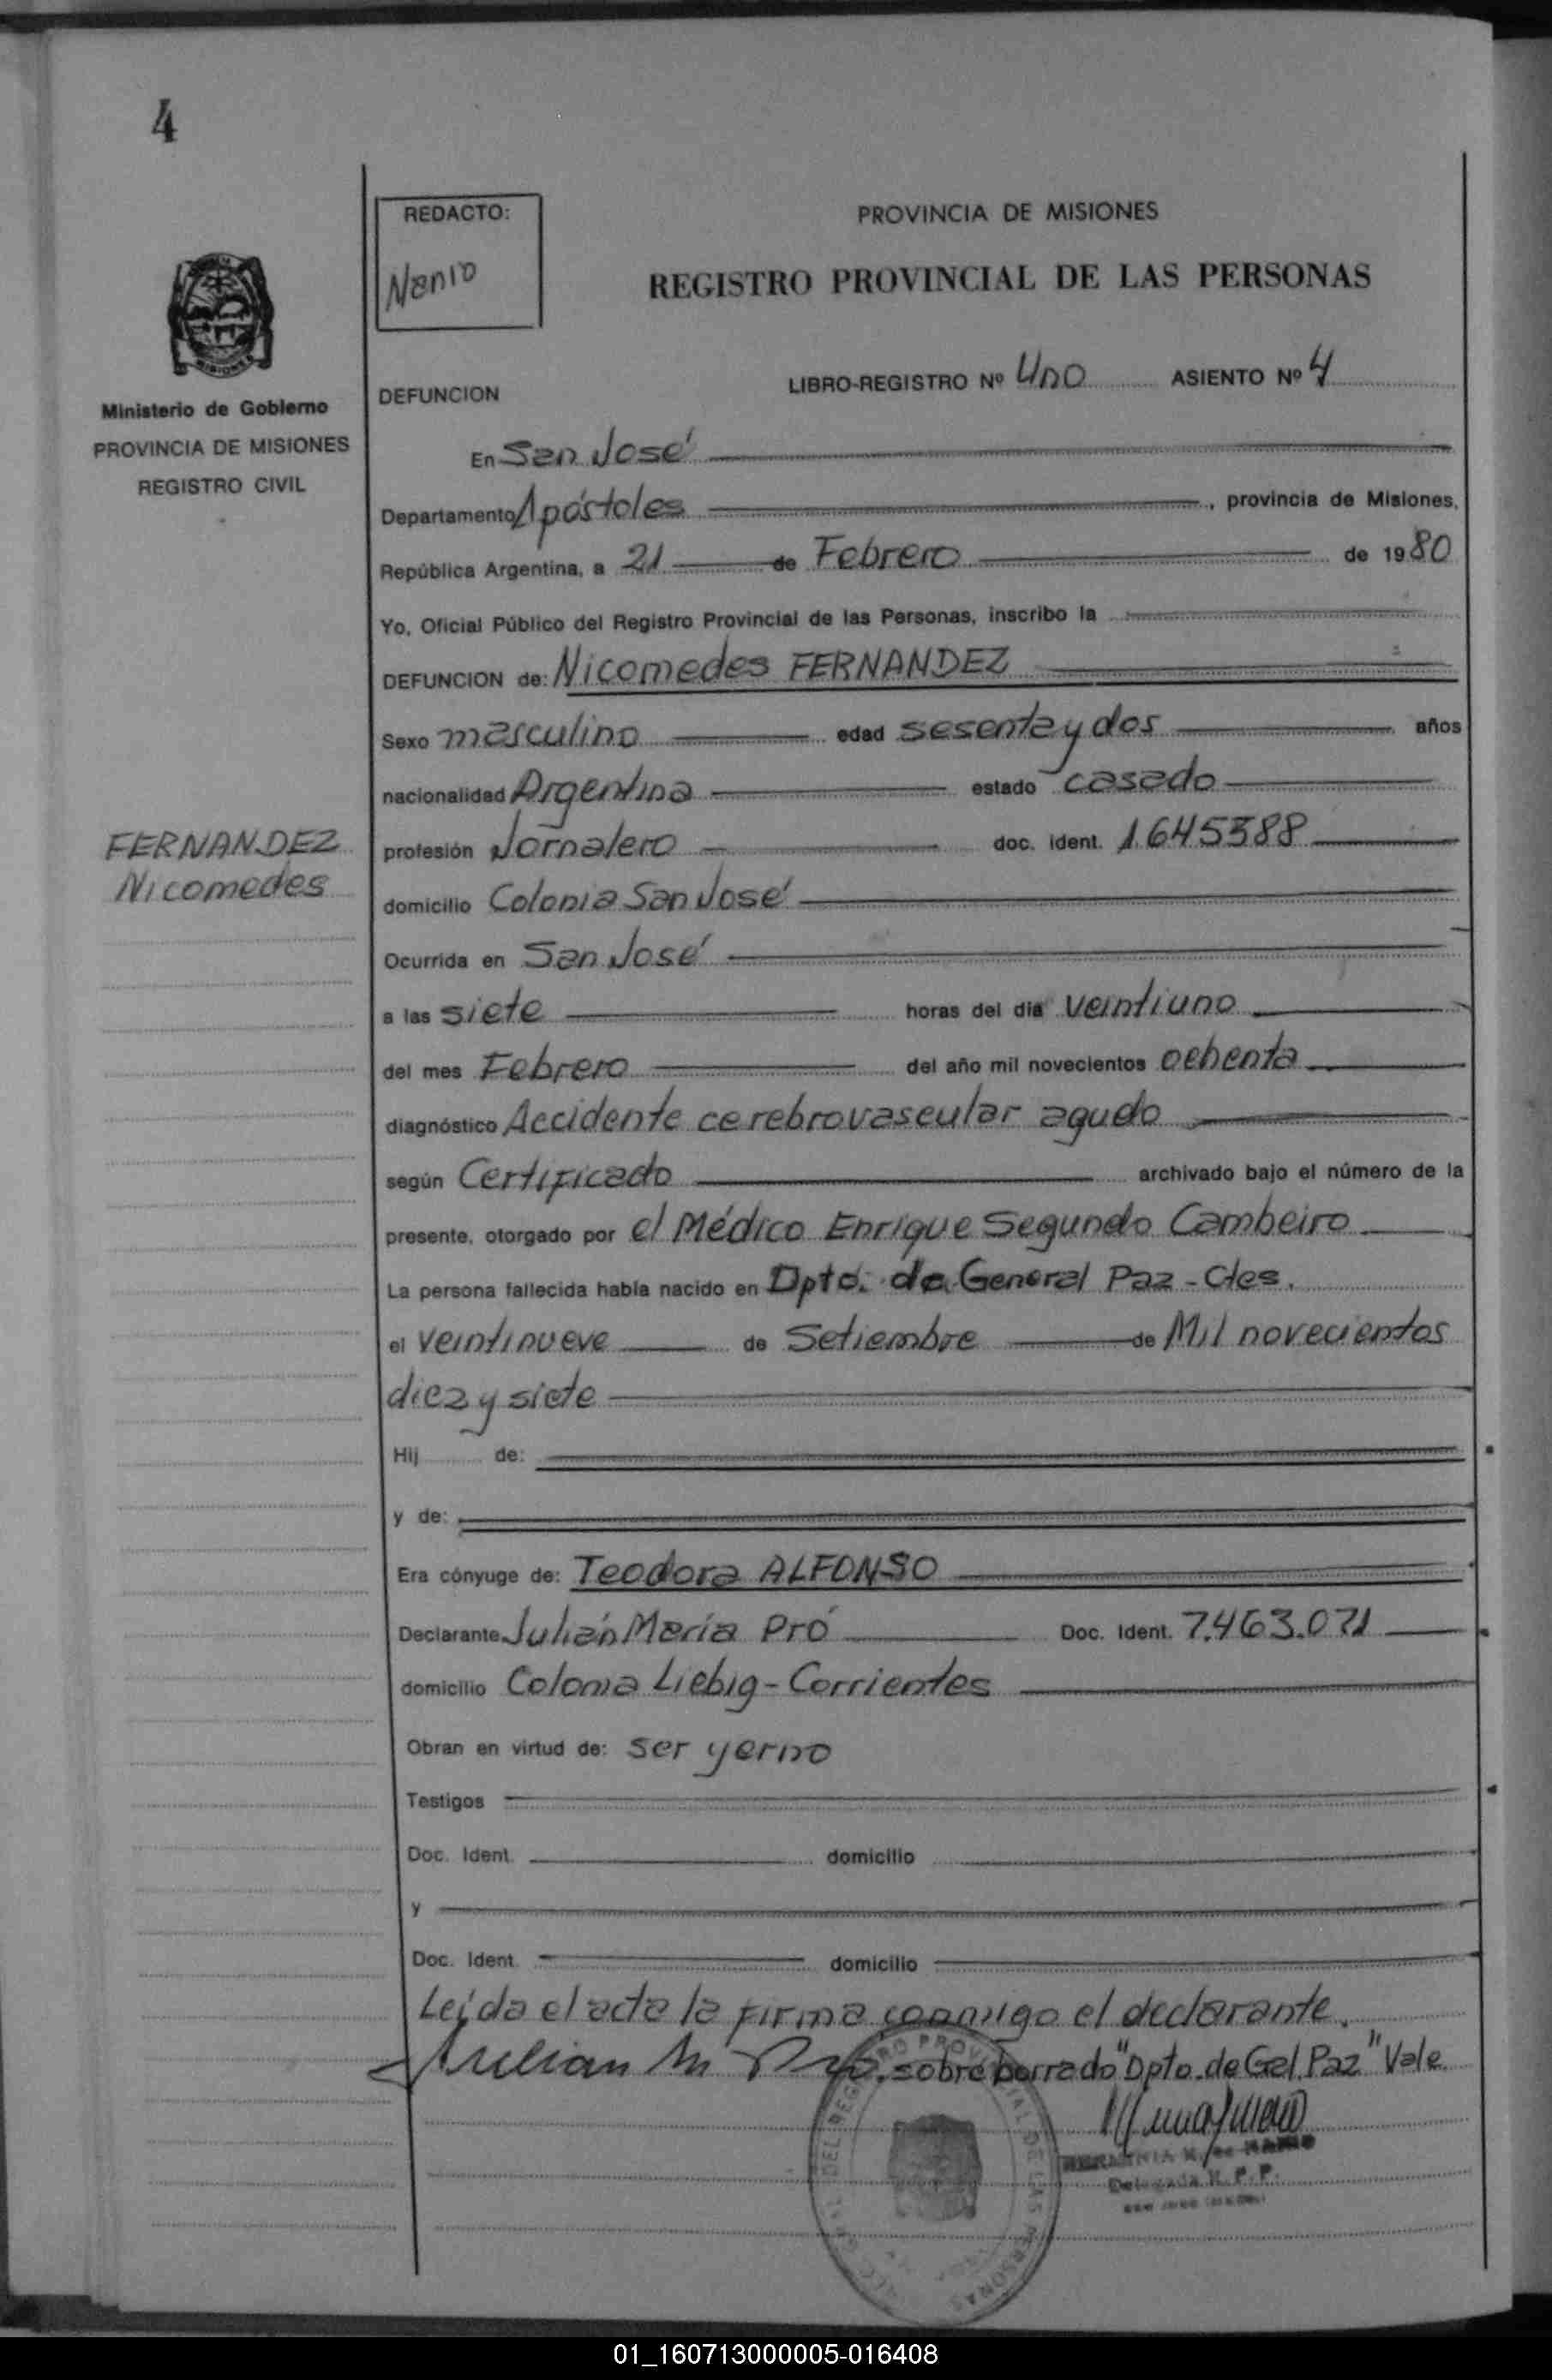 4
REDACTO:
Nenio
PROVINCIA DE MISIONES
REGISTRO PROVINCIAL DE LAS PERSONAS
MISIONES
Ministerio de Gobierno
PROVINCIA DE MISIONES
REGISTRO CIVIL
DEFUNCION
LIBRO-REGISTRO Nº Uno ASIENTO Nº 4
En San José
Departamento Apóstoles, provincia de Misiones,
República Argentina, a 21 de Febrero de 1980
Yo, Oficial Público del Registro Provincial de las Personas, inscribo la
DEFUNCION de: Nicomedes FERNANDEZ
Sexo masculino edad sesenta y dos años
nacionalidad Argentina estado casado
FERNANDEZ
Nicomedes
profesión Jornalero doc. ident. 1.645388
domicilio Colonia San José
Ocurrida en San José
a las siete horas del día veintiuno
del mes Febrero del año mil novecientos ochenta
diagnóstico Accidente cerebrovascular agudo
según Certificado archivado bajo el número de la
presente, otorgado por el Médico Enrique Segundo Cambeiro
La persona fallecida había nacido en Dpto. de General Paz - Ctes.
el veintinueve de Setiembre de Mil novecientos
diez y siete
Hij de:
y de:
Era cónyuge de: Teodora ALFONSO
Declarante Julián María Pró Doc. Ident. 7.463.071
domicilio Colonia Liebig - Corrientes
Obran en virtud de: ser yerno
Testigos
Doc. Ident. domicilio
y
Doc. Ident. domicilio
Leída el acta la firma conmigo el declarante.
Julian M Pro. sobre borrado "Dpto. de Gel. Paz" Vale
Delegada R. P. P.
01_160713000005-016408